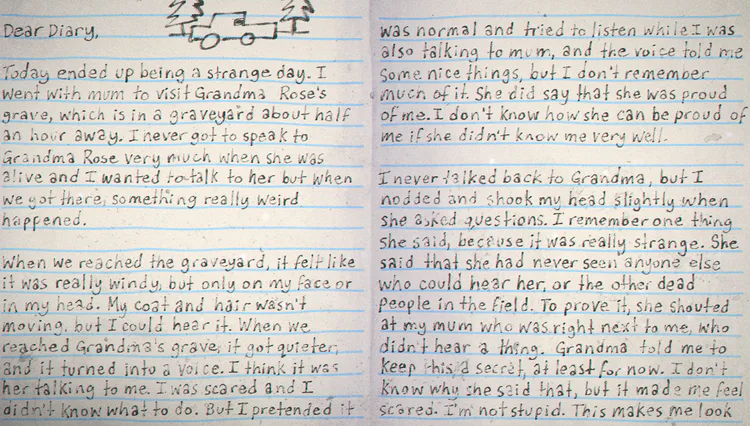 Dear Diary,
Today ended up being a strange day. I
went with mum to visit Grandma Rose's
grave, which is in a graveyard about half
an hour away. I never got to speak to
Grandma Rose very much when she was
alive and I wanted to talk to her but when
we got there, something really weird
happened.
When we reached the graveyard, it felt like
it was really windy, but only on my face or
in my head. My coat and hair wasn't
moving, but I could hear it. When we
reached Grandma's grave, it got quieter,
and it turned into a voice. I think it was
her talking to me. I was scared and I
didn't know what to do. But I pretended it
was normal and tried to listen while I was
also talking to mum, and the voice told me
some nice things, but I don't remember
much of it. She did say that she was proud
of me. I don't know how she can be proud of
me if she didn't know me very well.
I never talked back to Grandma, but I
nodded and shook my head slightly when
she asked questions. I remember one thing
she said, because it was really strange. She
said that she had never seen anyone else
who could hear her, or the other dead
people in the field. To prove it, she shouted
at my mum who was right next to me, who
didn't hear a thing. Grandma told me to
keep this a secret, at least for now. I don't
know why she said that, but it made me feel
scared. I'm not stupid. This makes me look